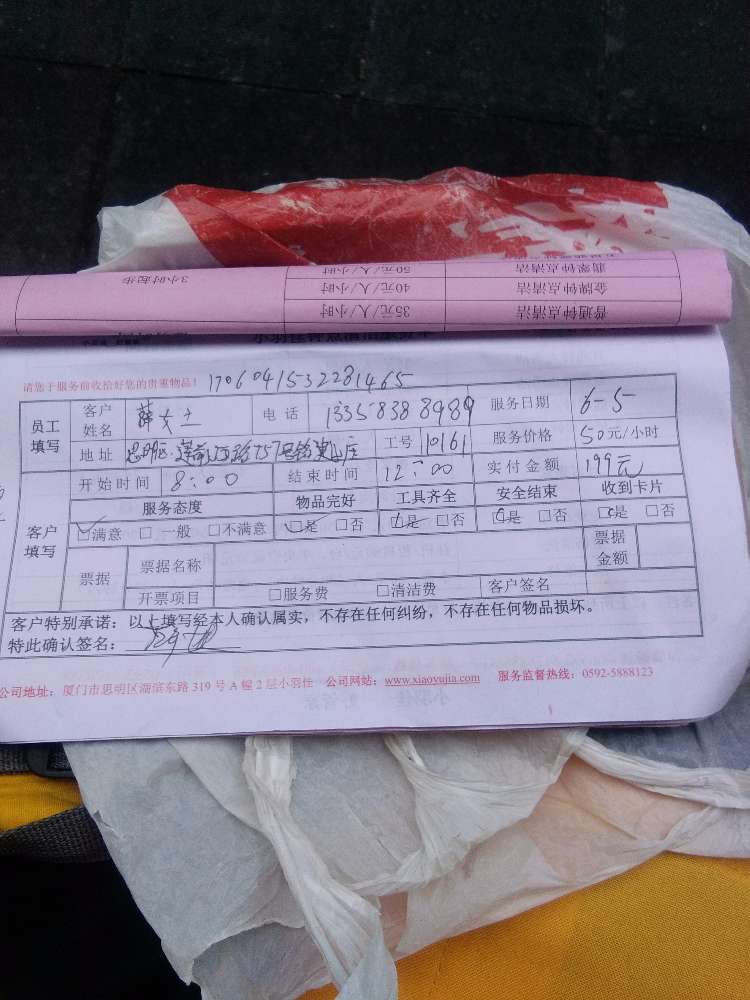 3小时起步 50元/人/小时 翡翠钟点清洁
40元/人/小时 金牌钟点清洁
35元/人/小时 普通钟点清洁
请您于服务前收拾好您的贵重物品! 17060415322281465
员工填写 客户姓名 薛女士 电话 13358388989 服务日期 6-5
地址 思明区 莲前西路757号 工号 10161 服务价格 50元/小时
开始时间 8:00 结束时间 12:00 实付金额 199元
客户填写 服务态度 物品完好 工具齐全 安全结束 收到卡片
☑满意 □一般 □不满意 ☑是 □否 ☑是 □否 ☑是 □否 ☑是 □否
票据 票据名称 票据金额
开票项目 □服务费 □清洁费 客户签名
客户特别承诺:以上填写经本人确认属实,不存在任何纠纷,不存在任何物品损坏。
特此确认签名:
公司地址:厦门市思明区湖滨东路319号A幢2层小羽佳 公司网站:www.xiaoyujia.com 服务监督热线:0592-5888123